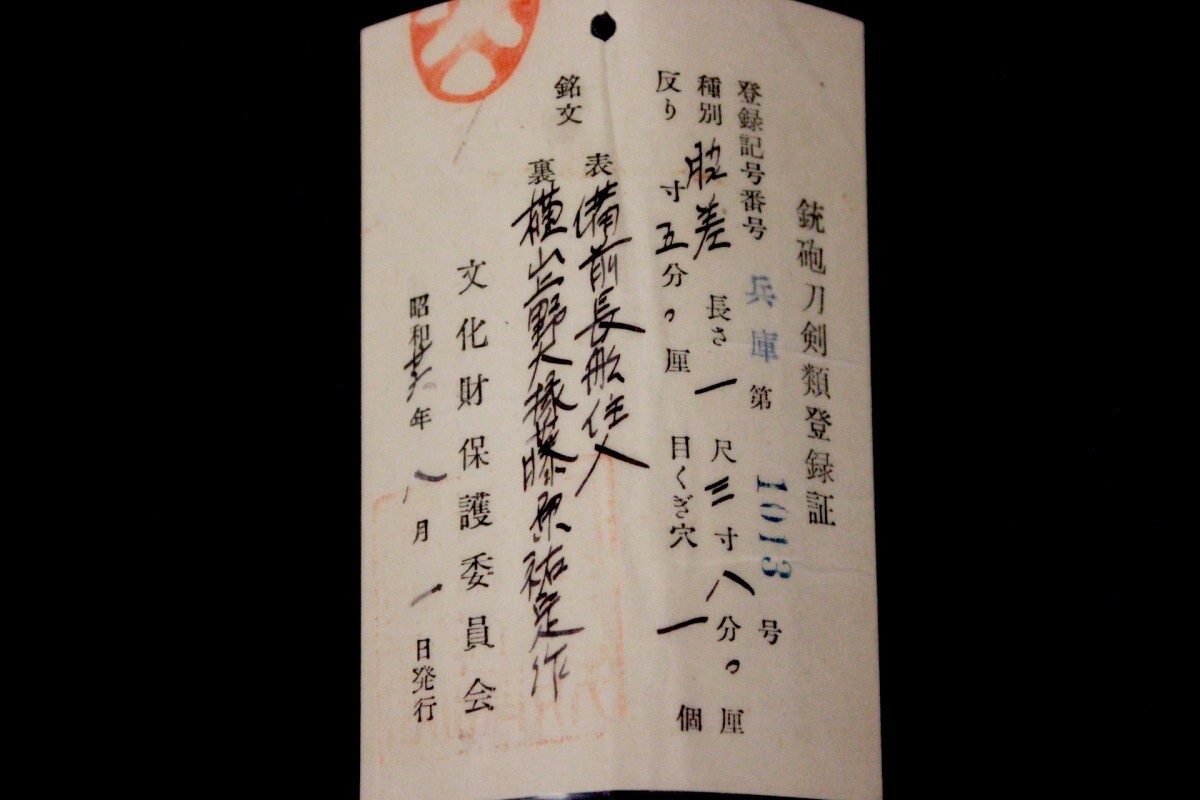 銃砲刀剣類登録証
登録記号番号 兵庫 第 1013 号
種別 脇差 長さ 一尺三寸八分〇厘
反り 寸五分〇厘 目くぎ穴 一個
銘文 表 備前長船住人
裏 横山上野大掾藤原祐定作
文化財保護委員会
昭和 年八月一日発行